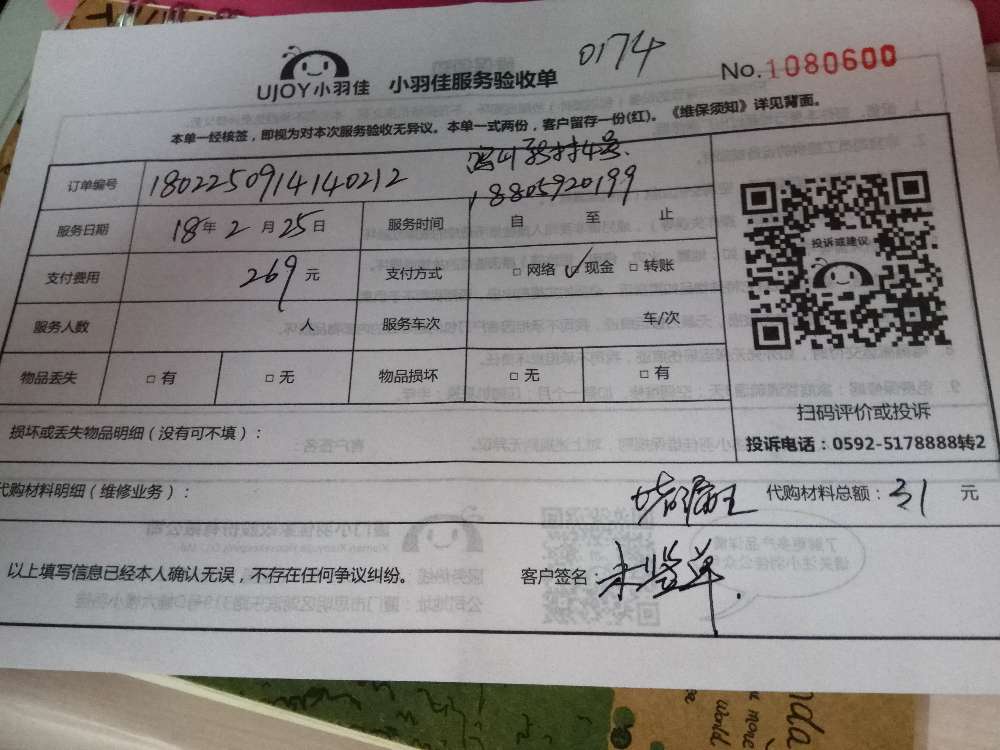 0174
UJOY小羽佳 小羽佳服务验收单 No.1080600
本单一经核签，即视为对本次服务验收无异议。本单一式两份，客户留存一份(红)。《维保须知》详见背面。
订单编号 1802250914140212
18805920199
服务日期 18年2月25日 服务时间 自 至 止
支付费用 269元 支付方式 □网络 ✓现金 □转账
服务人数 人 服务车次 车/次
物品丢失 □有 □无 物品损坏 □无 □有
投诉或建议
扫码评价或投诉
投诉电话：0592-5178888转2
损坏或丢失物品明细（没有可不填）：
代购材料明细（维修业务）： 堵漏王 代购材料总额：31 元
以上填写信息已经本人确认无误，不存在任何争议纠纷。 客户签名：未签单